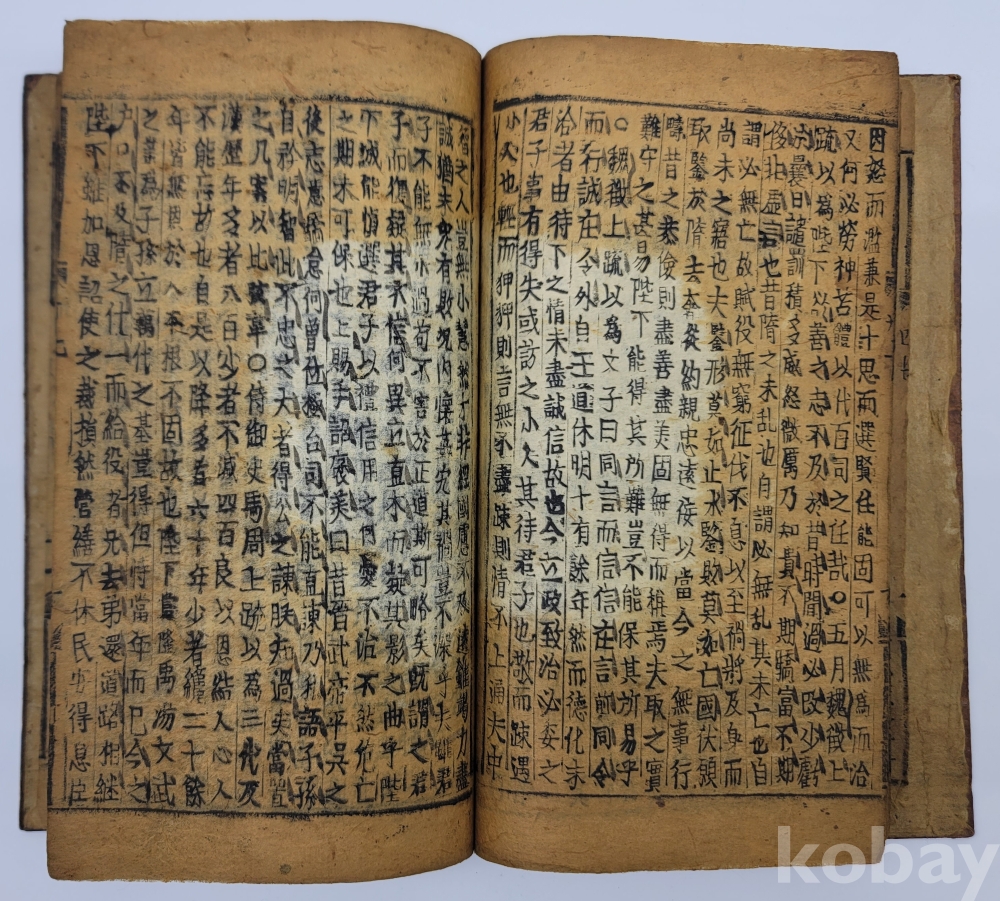 因怒而濫兼是十思而選賢任能固可以無爲而治
又何必勞神苦體以代百司之任哉○五月魏徵上
疏以爲陛下以善之志不及於昔時聞過必改少虧
於曩日譴罰積多威怒微厲乃知貴不期驕富不期
侈非虛言也昔隋之未乱也自謂必無乱其未亡也自
謂必無亡故賦役無窮征伐不息以至禍將及身而
尚未之寤也夫鑒形莫如止水鑒敗莫如亡國伏願
取鑒於隋去奢從約親忠遠佞以當今之無事行
疇昔之恭儉則盡善盡美固無得而稱焉夫取之實
難守之甚易陛下能得其所難豈不能保其所易乎
○魏徵上疏以爲文子曰同言而信信在言前同令
而行誠在令外自王道休明十有餘年然而德化未
洽者由待下之情未盡誠信故也今立政致治必委之
君子事有得失或訪之小人其待君子也敬而疎遇
小人也輕而狎狎則言無不盡疎則情不上通夫中
智之人豈無小慧然才非經國慮不及遠雖竭力盡
誠猶未免有敗況內懷姦宄其禍豈不深乎夫雖君
子不能無小過苟不害於正道斯可略矣旣謂之君
子而復疑其不信何異立直木而疑其影之曲乎陛
下誠能愼選君子以禮信用之何憂不治不然危亡
之期未可保也上賜手詔褒美曰昔晉武帝平吳之
後志意驕怠何曾位極台司不能直諫乃私語子孫
自矜明智此不忠之大者得公之諫朕知過矣當置
之几案以比弦韋○侍御史馬周上疏以爲三代及
漢歷年多者八百少者不減四百良以恩結人心人
不能忘故也自是以降多者六十年少者纔二十餘
年皆無恩於人本根不固故也陛下當隆禹湯文武
之業爲子孫立萬代之基豈得但恃當年而已今之
戶口不及隋之什一而給役者兄去弟還道路相繼
陛下雖加恩詔使之裁損然營繕不休民安得息臣